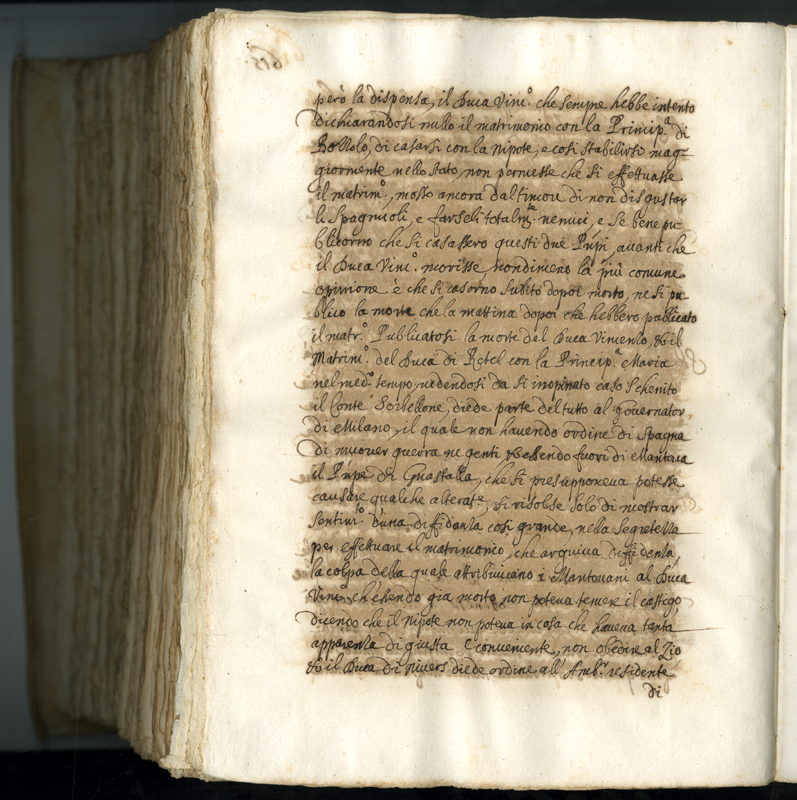 però la dispensa, il Duca Vinc.º che sempre hebbe intento
dichiarandosi nullo il matrimonio con la Princip.ª di
Bozzolo, di casarsi con la Nipote, e così stabilirsi mag-
giormente nello stato, non permesse che si effettuasse
il matrim.º, mosso ancora dal timor di non disgustar
li Spagnuoli, e farseli totalm.te nemici, e se bene pu-
blicorno che si casassero questi due Prnpi, avanti che
il Duca Vinc.º morisse, nondimeno la più comune
opinione è che si casorno subito dopoi morto, ne si pu-
blicò la morte che la mattina dopoi che hebbero publicato
il matr.º Publicatosi la morte del Duca Vincenzo, & il
Matrim.º del Duca di Retel con la Princip.ª Maria
nel med.º tempo, vedendosi da si inopinato caso schernito
il Conte Serbellone, diede parte del tutto al Governator
di Milano, il quale non havendo ordine di Spagna
di muover guerra essendo fuori di Mantova
il Prnpe di Guastalla, che si presupponeva potesse
causare qualche alterat.e, si risolse solo di mostrar
sentim.to d'una diffidenza così grande, nella segretezza
per effettuare il matrimonio, che arguiva diffidenza,
la colpa della quale attribuivano i Mantovani al Duca
Vinc.º ch'essendo gia morto non poteva temere il castigo,
dicendo che il Nipote non poteva in cosa che haveva tanta
apparenza di giusta e conveniente, non obedire al Zio
& il Duca di Nivers diede ordine all'Amb.r residente
di